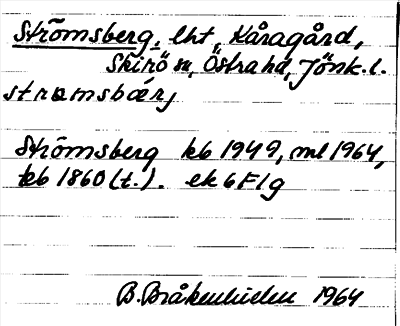 Strömsberg, lht, Kåragård,
Skirö sn, Östra hd, Jönk. l.
strømsbærj
Strömsberg kb 1949, ml 1964,
kb 1860 (t.). ek 6F1g
B. Bråkenhielm 1964